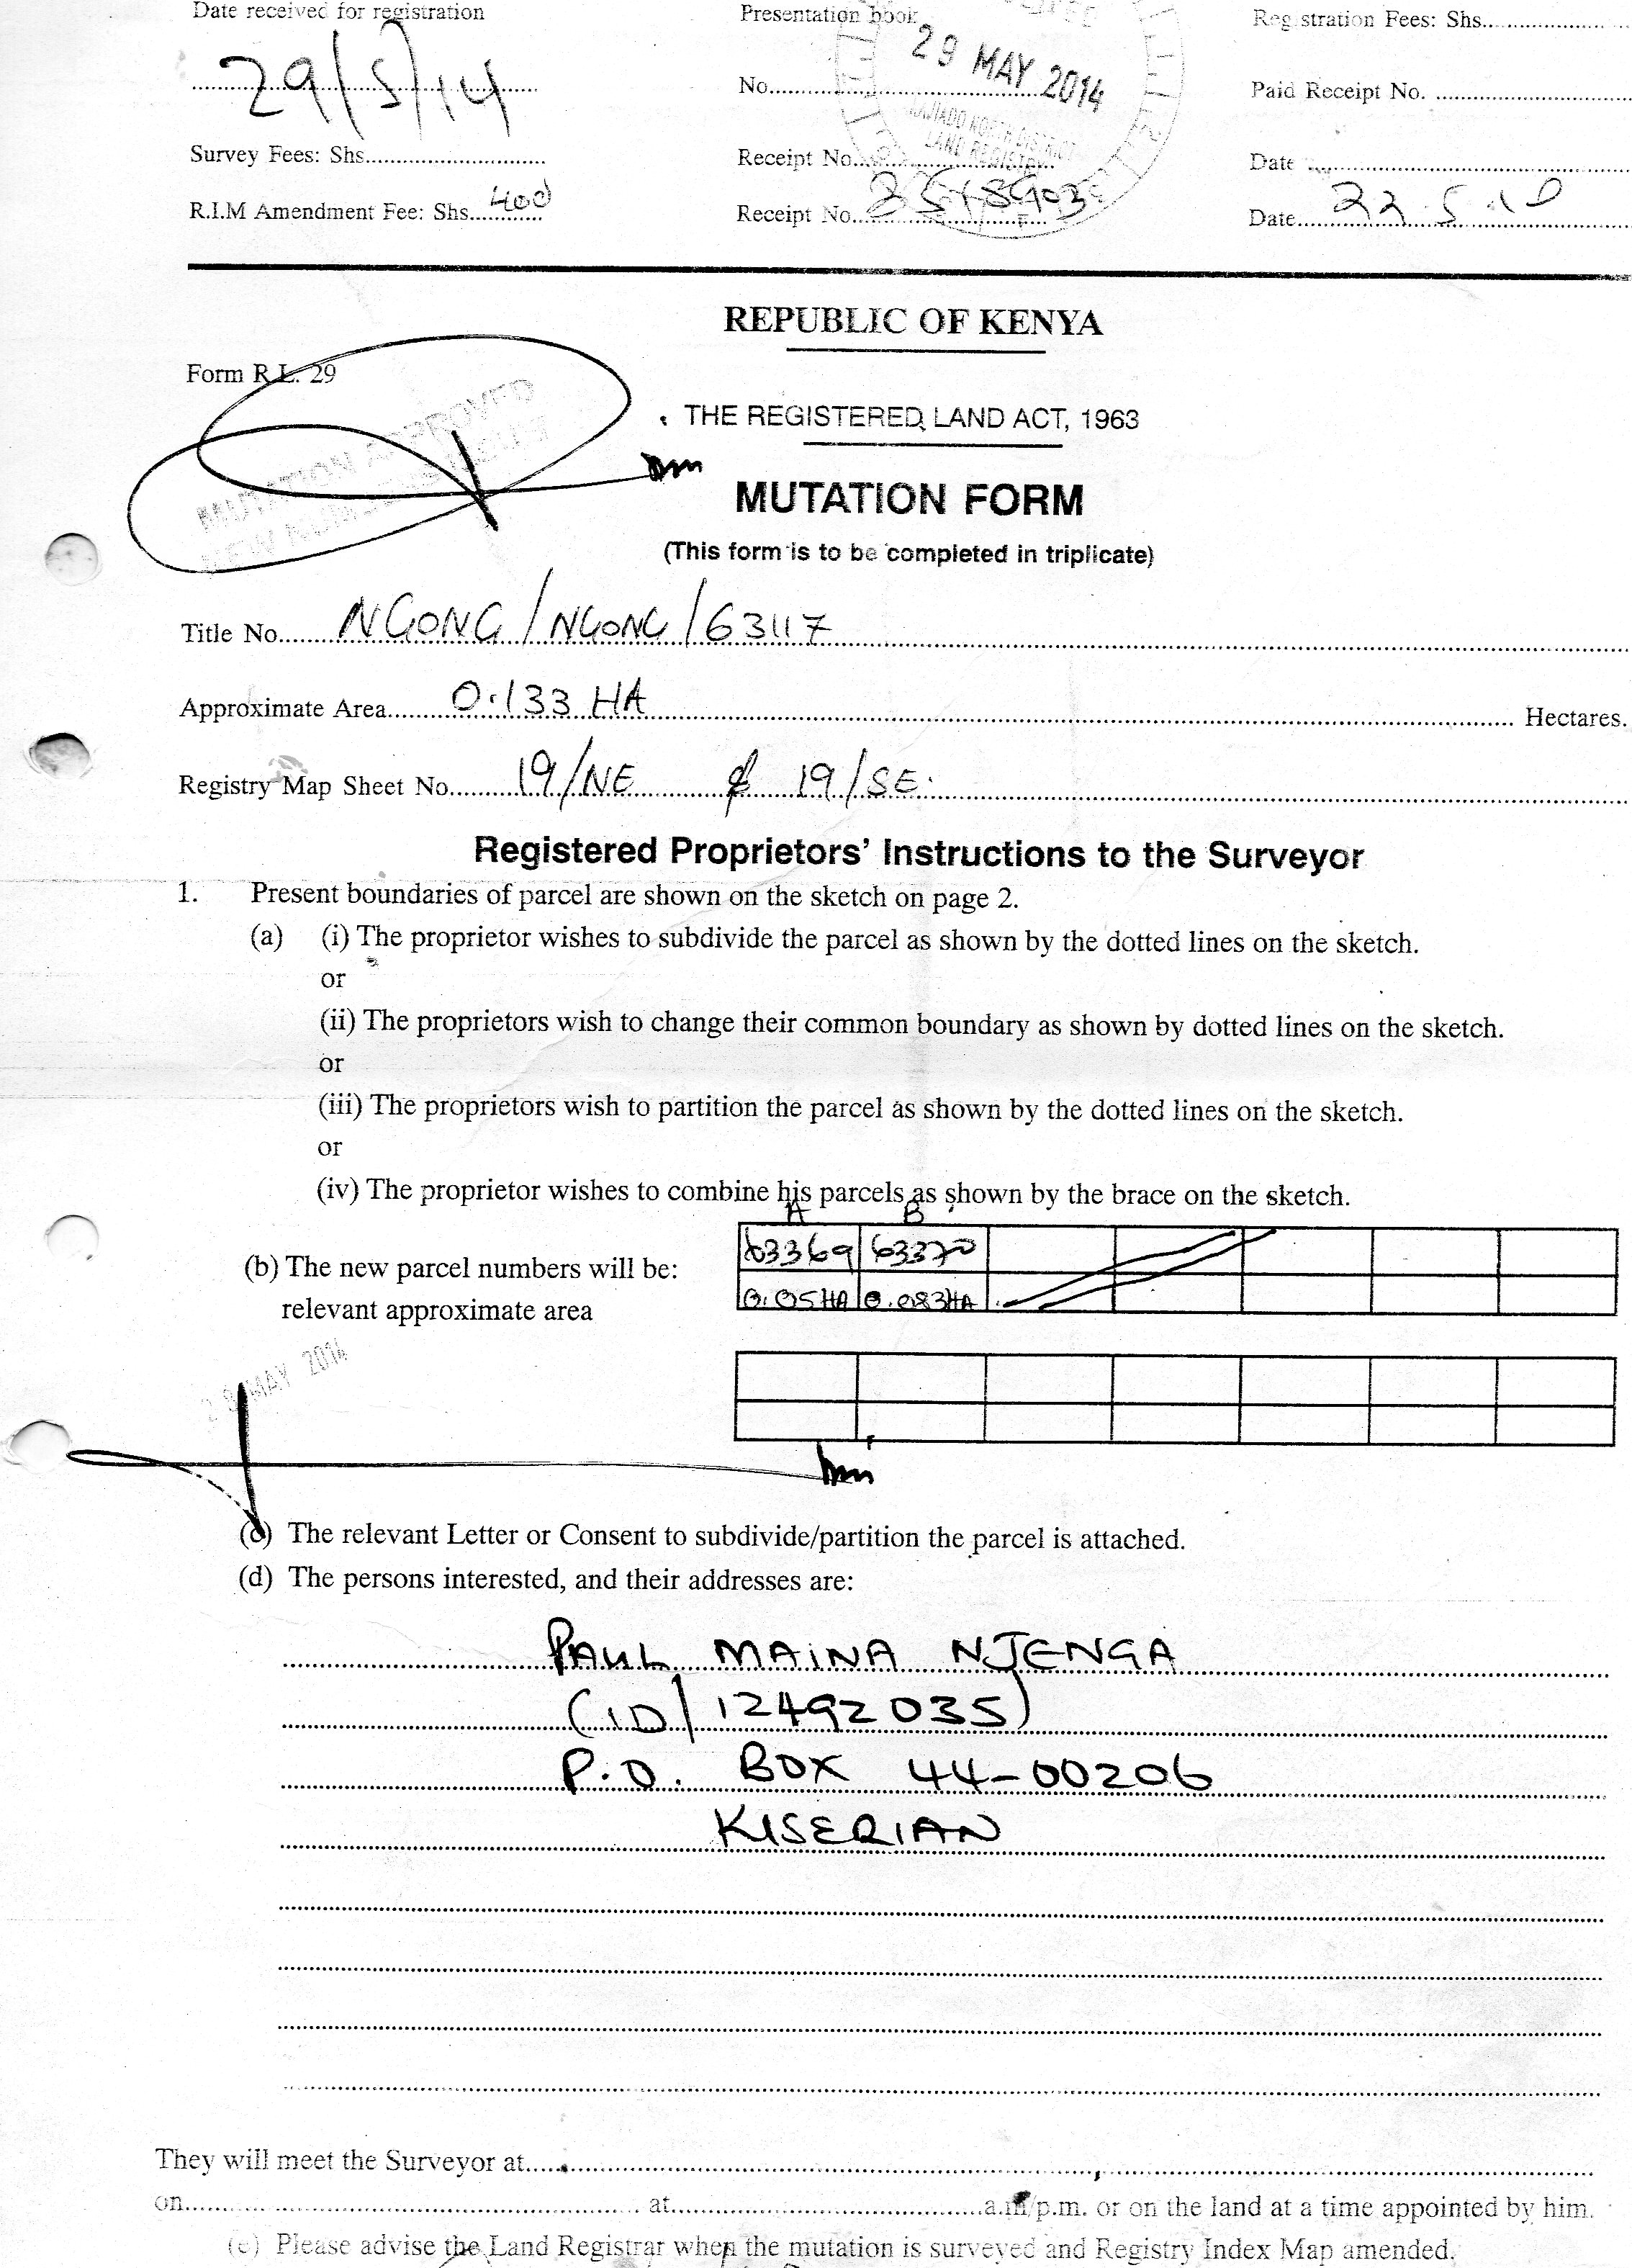 Date received for registration Presentation book Registration Fees: Shs.
29/5/14
29 MAY 2014
No. Paid Receipt No.
KAJIADO NORTH DISTRICT
LAND REGISTRY
Survey Fees: Shs. Receipt No. Date
R.I.M Amendment Fee: Shs. 400 Receipt No. Date
REPUBLIC OF KENYA
Form R.L. 29
THE REGISTERED LAND ACT, 1963
MUTATION APPROVED
MUTATION FORM
(This form is to be completed in triplicate)
Title No. NGONG/NGONG/63117
Approximate Area 0.133 HA Hectares.
Registry Map Sheet No. 19/NE & 19/SE.
Registered Proprietors' Instructions to the Surveyor
1. Present boundaries of parcel are shown on the sketch on page 2.
(a) (i) The proprietor wishes to subdivide the parcel as shown by the dotted lines on the sketch.
or
(ii) The proprietors wish to change their common boundary as shown by dotted lines on the sketch.
or
(iii) The proprietors wish to partition the parcel as shown by the dotted lines on the sketch.
or
(iv) The proprietor wishes to combine his parcels as shown by the brace on the sketch.
A B
(b) The new parcel numbers will be: 63369 63370
relevant approximate area 0.05HA 0.083HA
MAY 2014
(c) The relevant Letter or Consent to subdivide/partition the parcel is attached.
(d) The persons interested, and their addresses are:
PAUL MAINA NJENGA
(ID/12492035)
P.O. BOX 44-00206
KISERIAN
They will meet the Surveyor at
on at a.m/p.m. or on the land at a time appointed by him.
(e) Please advise the Land Registrar when the mutation is surveyed and Registry Index Map amended.